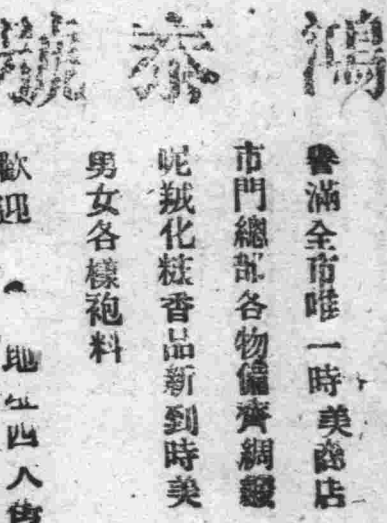 鴻泰號
譽滿全市唯一時美商店
市門總部各物備齊綢緞
呢羢化粧香品新到時美
男女各樣袍料
歡迎
地址四人